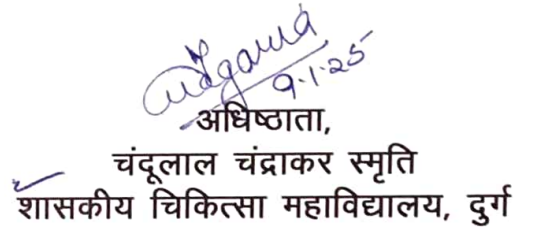 9.1.25
अधिष्ठाता,
चंदूलाल चंद्राकर स्मृति
शासकीय चिकित्सा महाविद्यालय, दुर्ग